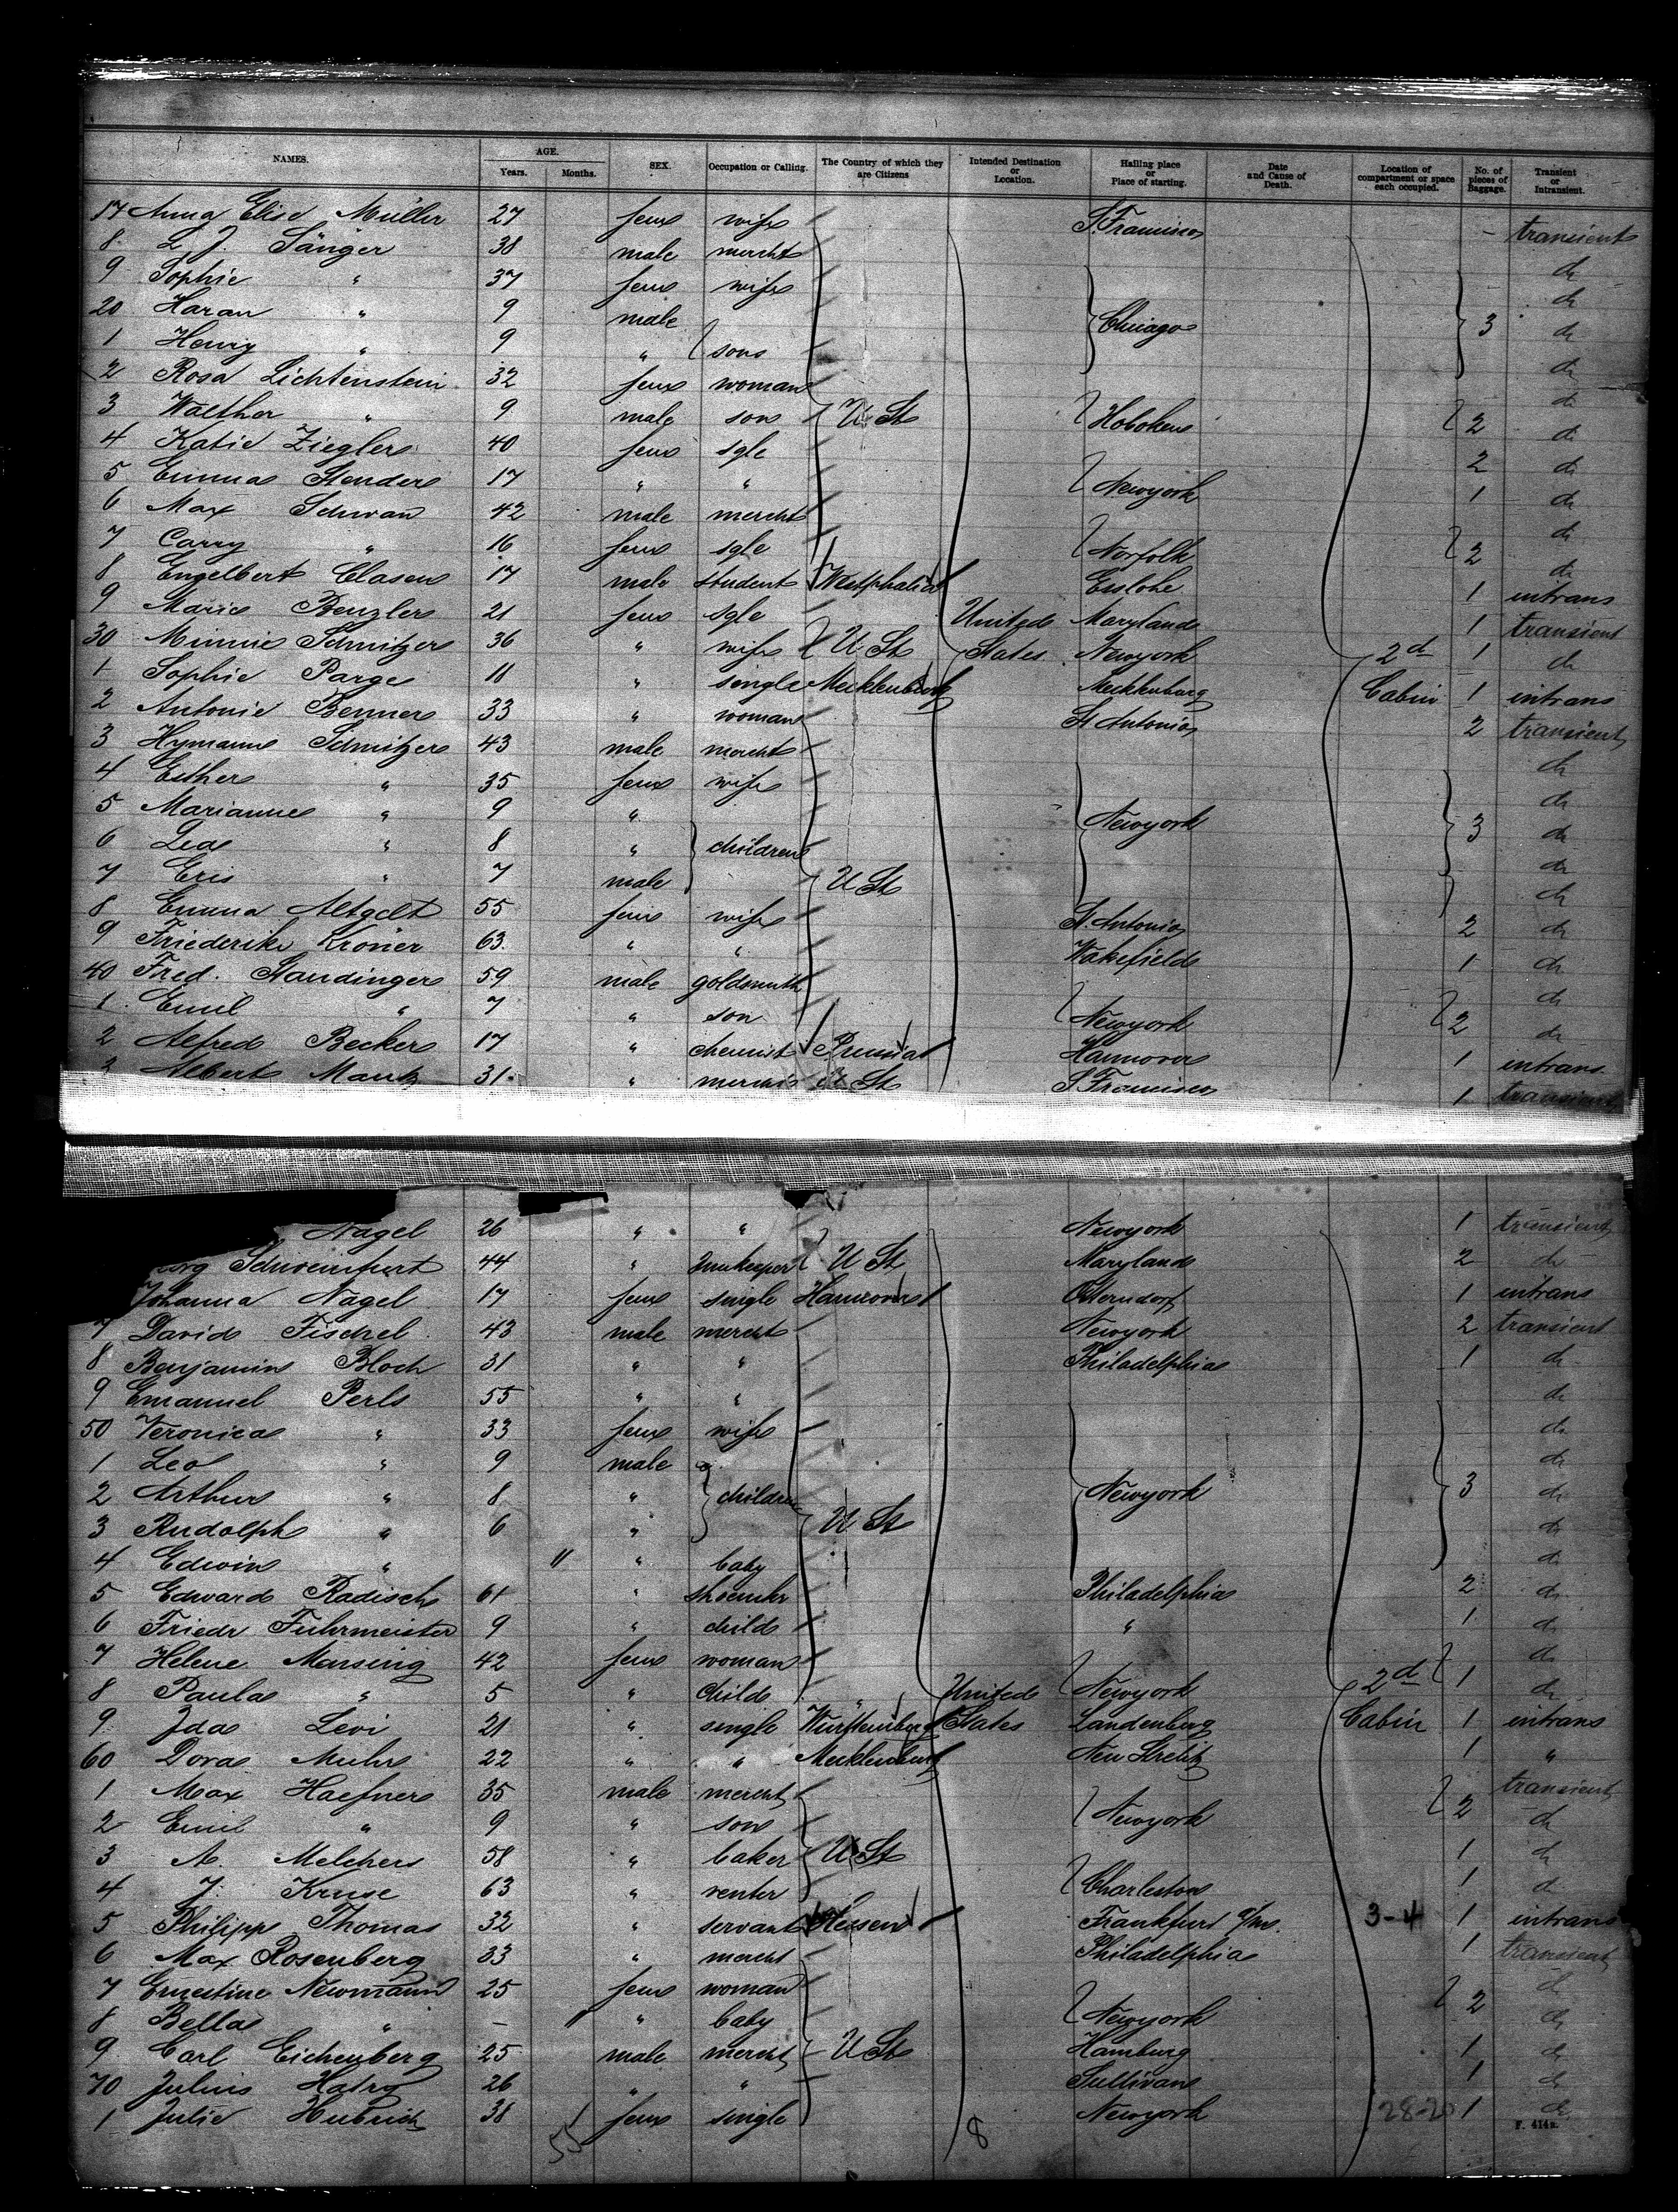 NAMES. AGE. Years. Months. SEX. Occupation or Calling. The Country of which they are Citizens Intended Destination or Location. Hailing place or Place of starting. Date and Cause of Death. Location of compartment or space each occupied. No. of pieces of Baggage. Transient or Intransient.
17 Anna Elise Müller 27 fem wife S. Francisco - transient
8 L. J. Sänger 38 male mercht do
9 Sophie " 37 fem wife do
20 Haran " 9 male Chicago 3 do
1 Henry " 9 " sons do
2 Rosa Lichtenstein 32 fem woman do
3 Walther " 9 male son U St Hoboken 2 do
4 Katie Ziegler 40 fem sgle 2 do
5 Emma Stender 17 " " Newyork 1 do
6 Max Schwan 42 male mercht do
7 Carry " 16 fem sgle Norfolk 2 do
8 Engelbert Clasen 17 male student Westphalia Esslohe 1 intrans
9 Marie Benzler 21 fem sgle United Maryland 1 transient
30 Minnie Schnitzer 36 " wife U St States Newyork 2d 1 do
1 Sophie Parge 18 " single Mecklenburg Mecklenburg Cabin 1 intrans
2 Antonie Benner 33 " woman St Antonio 2 transient
3 Hymann Schnitzer 43 male mercht do
4 Esther " 35 fem wife do
5 Marianne " 9 " Newyork 3 do
6 Lea " 8 " children do
7 Eris " 7 male U St do
8 Emma Altgelt 55 fem wife St. Antonio 2 do
9 Friederike Kröner 63 " " Wakefield 1 do
40 Fred. Staudinger 59 male goldsmith do
1 Emil " 7 " son Newyork 2 do
2 Alfred Becker 17 " chemist Prussia Hannover 1 intrans
3 Albert Mantz 31 " mercht U St S Francisco 1 transient
Nagel 26 " " Newyork 1 transient
Schweinfurt 44 " Innkeeper U St Maryland 2 do
Johanna Nagel 17 fem single Hannover Otterndorf 1 intrans
7 David Fischel 43 male mercht Newyork 2 transient
8 Benjamin Bloch 31 " " Philadelphia 1 do
9 Emanuel Perls 55 " " do
50 Veronica " 33 fem wife do
1 Leo " 9 male do
2 Arthur " 8 " children Newyork 3 do
3 Rudolph " 6 " U St do
4 Edwin " 11 " baby do
5 Edward Radisch 61 " shoemkr Philadelphia 2 do
6 Friedr Fuhrmeister 9 " child " 1 do
7 Helene Marsing 42 fem woman do
8 Paula " 5 " child United Newyork 2d 1 do
9 Ida Levi 21 " single Württemberg States Landenberg Cabin 1 intrans
60 Dora Muhr 22 " " Mecklenburg Neu Strelitz 1 "
1 Max Haefner 35 male mercht transient
2 Emil " 9 " son Newyork 2 do
3 A. Melchers 58 " baker U St 1 do
4 J. Kruse 63 " renter Charleston 1 do
5 Philipp Thomas 32 " servant Hessen Frankfurt a/m. 3-4 1 intrans
6 Max Rosenberg 33 " mercht Philadelphia 1 transient
7 Ernestine Newmann 25 fem woman do
8 Bella " - " baby Newyork 2 do
9 Carl Eichenberg 25 male mercht U St Hamburg 1 do
70 Julius Hatry 26 " " Sullivan 1 do
1 Julie Hubrich 38 fem single Newyork 28-20 1 do
F. 414a.
55 8